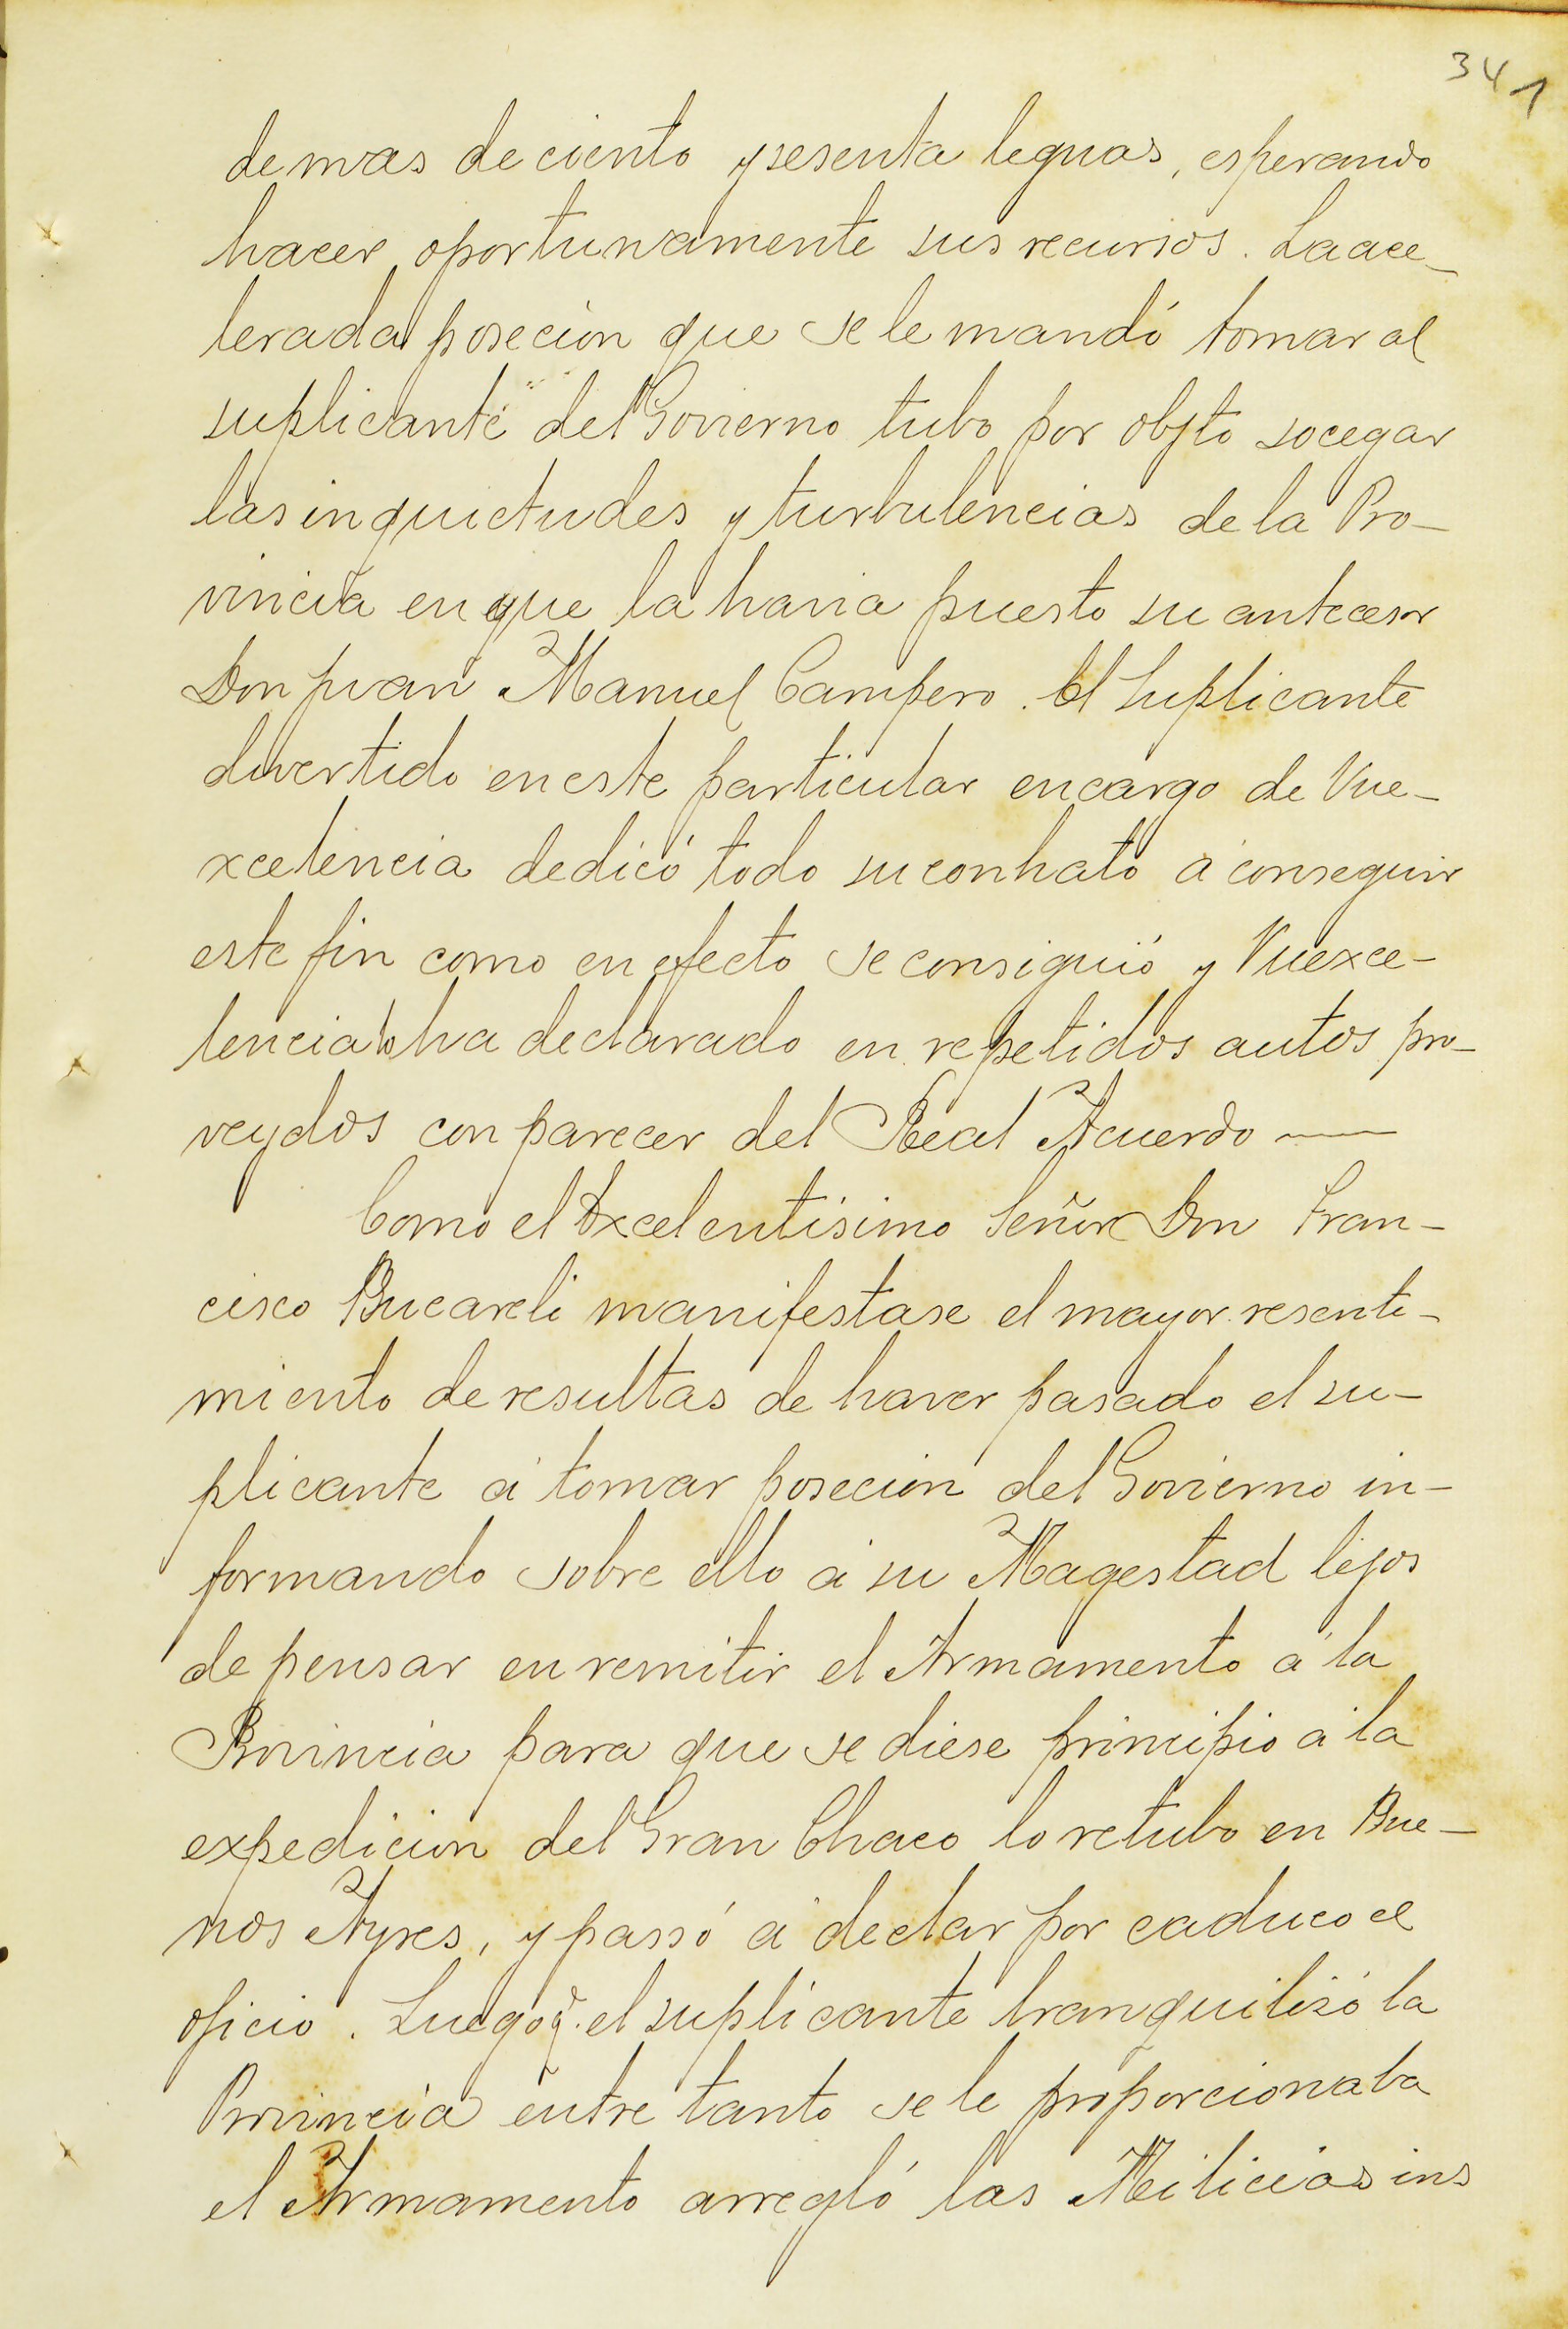 341
de mas de ciento y sesenta leguas, esperando
hacer oportunamente sus recursos. La ace-
lerada poseción que se le mandó tomar al
suplicante del Govierno tubo por objto socegar
las inquietudes y turbulencias de la Pro-
vincia en que la havia puesto su antecesor
Don Juan Manuel Campero. El Suplicante
divertido en este particular encargo de Vue-
xcelencia dedicó todo su conhato á conseguir
este fin como en efecto se consiguió y Vuexce-
lencia lo ha declarado en repetidos autos pro-
veydos con parecer del Real Acuerdo —
Como el Excelentísimo Señor Don Fran-
cisco Bucareli manifestase el mayor resenti-
miento de resultas de haver pasado el su-
plicante á tomar poseción del Govierno in-
formando sobre ello á su Magestad lejos
de pensar en remitir el Armamento á la
Provincia para que se diese principio á la
expedición del Gran Chaco lo retubo en Bue-
nos Ayres, y passó á declar por caduco el
oficio. Luego q̃. el suplicante tranquilizó la
Provincia entre tanto se le proporcionaba
el Armamento arregló las Milicias ins